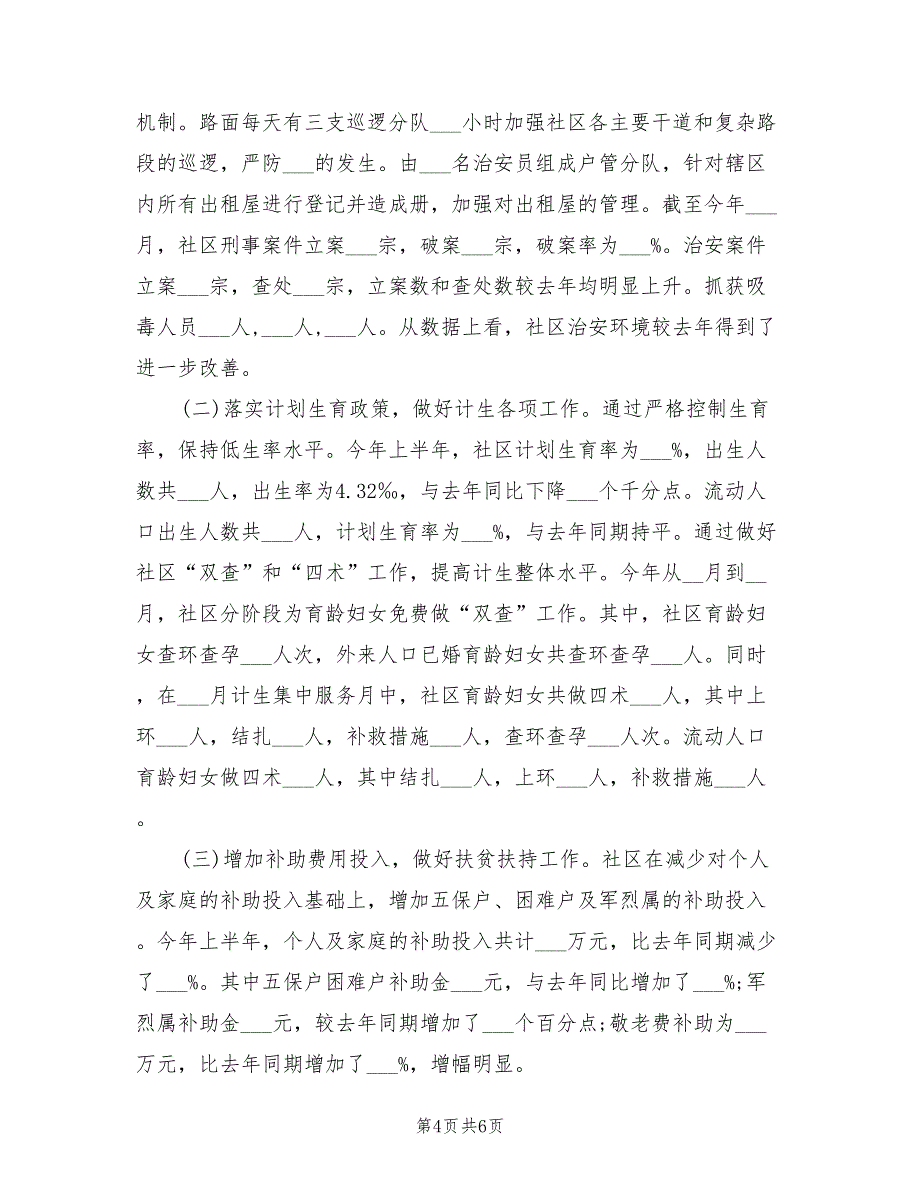 机制。路面每天有三支巡逻分队___小时加强社区各主要干道和复杂路
段的巡逻，严防___的发生。由___名治安员组成户管分队，针对辖区
内所有出租屋进行登记并造成册，加强对出租屋的管理。截至今年___
月，社区刑事案件立案___宗，破案___宗，破案率为___%。治安案件
立案___宗，查处___宗，立案数和查处数较去年均明显上升。抓获吸
毒人员___人,___人,___人。从数据上看，社区治安环境较去年得到了
进一步改善。
(二)落实计划生育政策，做好计生各项工作。通过严格控制生育
率，保持低生率水平。今年上半年，社区计划生育率为___%，出生人
数共___人，出生率为4.32‰，与去年同比下降___个千分点。流动人
口出生人数共___人，计划生育率为___%，与去年同期持平。通过做好
社区“双查”和“四术”工作，提高计生整体水平。今年从__月到__
月，社区分阶段为育龄妇女免费做“双查”工作。其中，社区育龄妇
女查环查孕___人次，外来人口已婚育龄妇女共查环查孕___人。同时
，在___月计生集中服务月中，社区育龄妇女共做四术___人，其中上
环___人，结扎___人，补救措施___人，查环查孕___人次。流动人口
育龄妇女做四术___人，其中结扎___人，上环___人，补救措施___人
。
(三)增加补助费用投入，做好扶贫扶持工作。社区在减少对个人
及家庭的补助投入基础上，增加五保户、困难户及军烈属的补助投入
。今年上半年，个人及家庭的补助投入共计___万元，比去年同期减少
了___%。其中五保户困难户补助金___元，与去年同比增加了___%;军
烈属补助金___元，较去年同期增加了___个百分点;敬老费补助为___
万元，比去年同期增加了___%，增幅明显。
第4页共6页